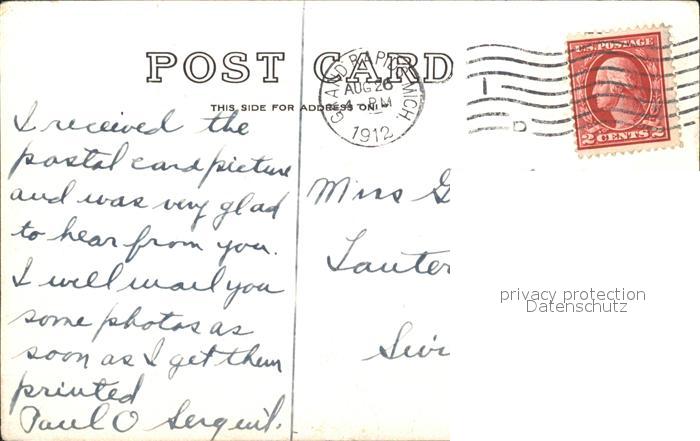 POST CARD
THIS SIDE FOR ADDRESS ONLY
GRAND RAPIDS MICH.
AUG 26
4 PM
1912
U.S. POSTAGE
2 CENTS 2
I received the
postal card picture
and was very glad
to hear from you.
I will mail you
some photos as
soon as I get them
printed
Paul O
Miss G
Lauter
privacy protection
Datenschutz